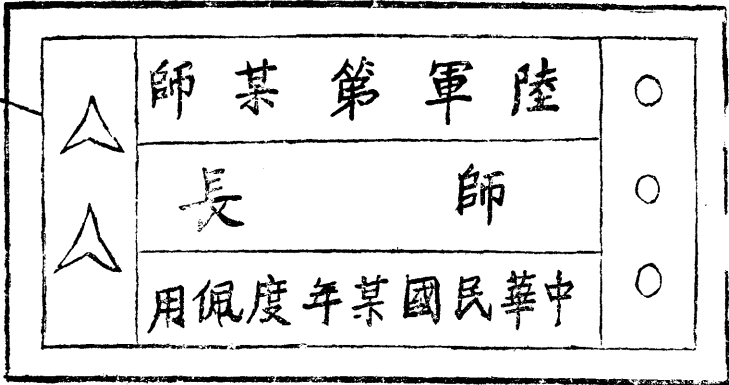 陸軍第某師
師長
中華民國某年度佩用